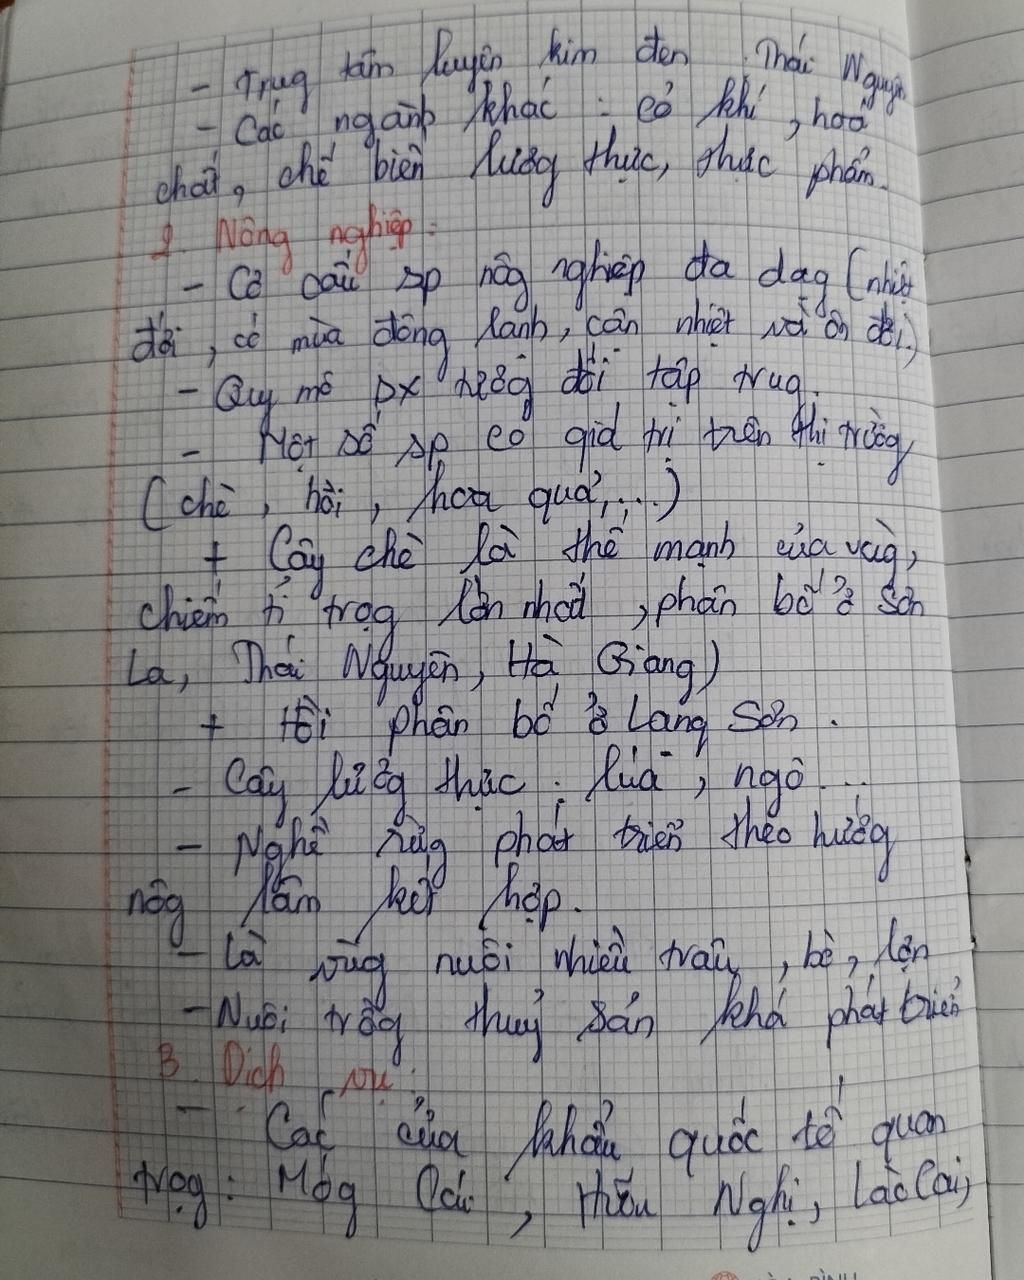 - Trug tâm luyện kim đen Thái Nguyên
- Các ngành khác : cơ khí, hoá
chất, chế biến lươg thực, thực phẩm.
2. Nông nghiệp:
- Cơ cấu sp nôg nghiệp đa dạg (nhiệt
đới, có mùa đông lạnh, cận nhiệt và ôn đới)
- Quy mô sx tươg đối tập trug.
- Một số sp có giá trị trên thị trườg
(chè, hồi, hoa quả,...)
+ Cây chè là thế mạnh của vùg,
chiếm tỉ trọg lớn nhất, phân bố ở Sơn
La, Thái Nguyên, Hà Giang)
+ Hồi phân bố ở Lạng Sơn.
- Cây lươg thực : lúa, ngô...
- Nghề rừg phát triển theo hướg
nôg lâm kết hợp.
- Là vùg nuôi nhiều trâu, bò, lợn
- Nuôi trồg thuỷ sản khá phát triển
3. Dịch vụ:
- Các cửa khẩu quốc tế quan
trọg: Móg Cái, Hữu Nghị, Lào Cai,